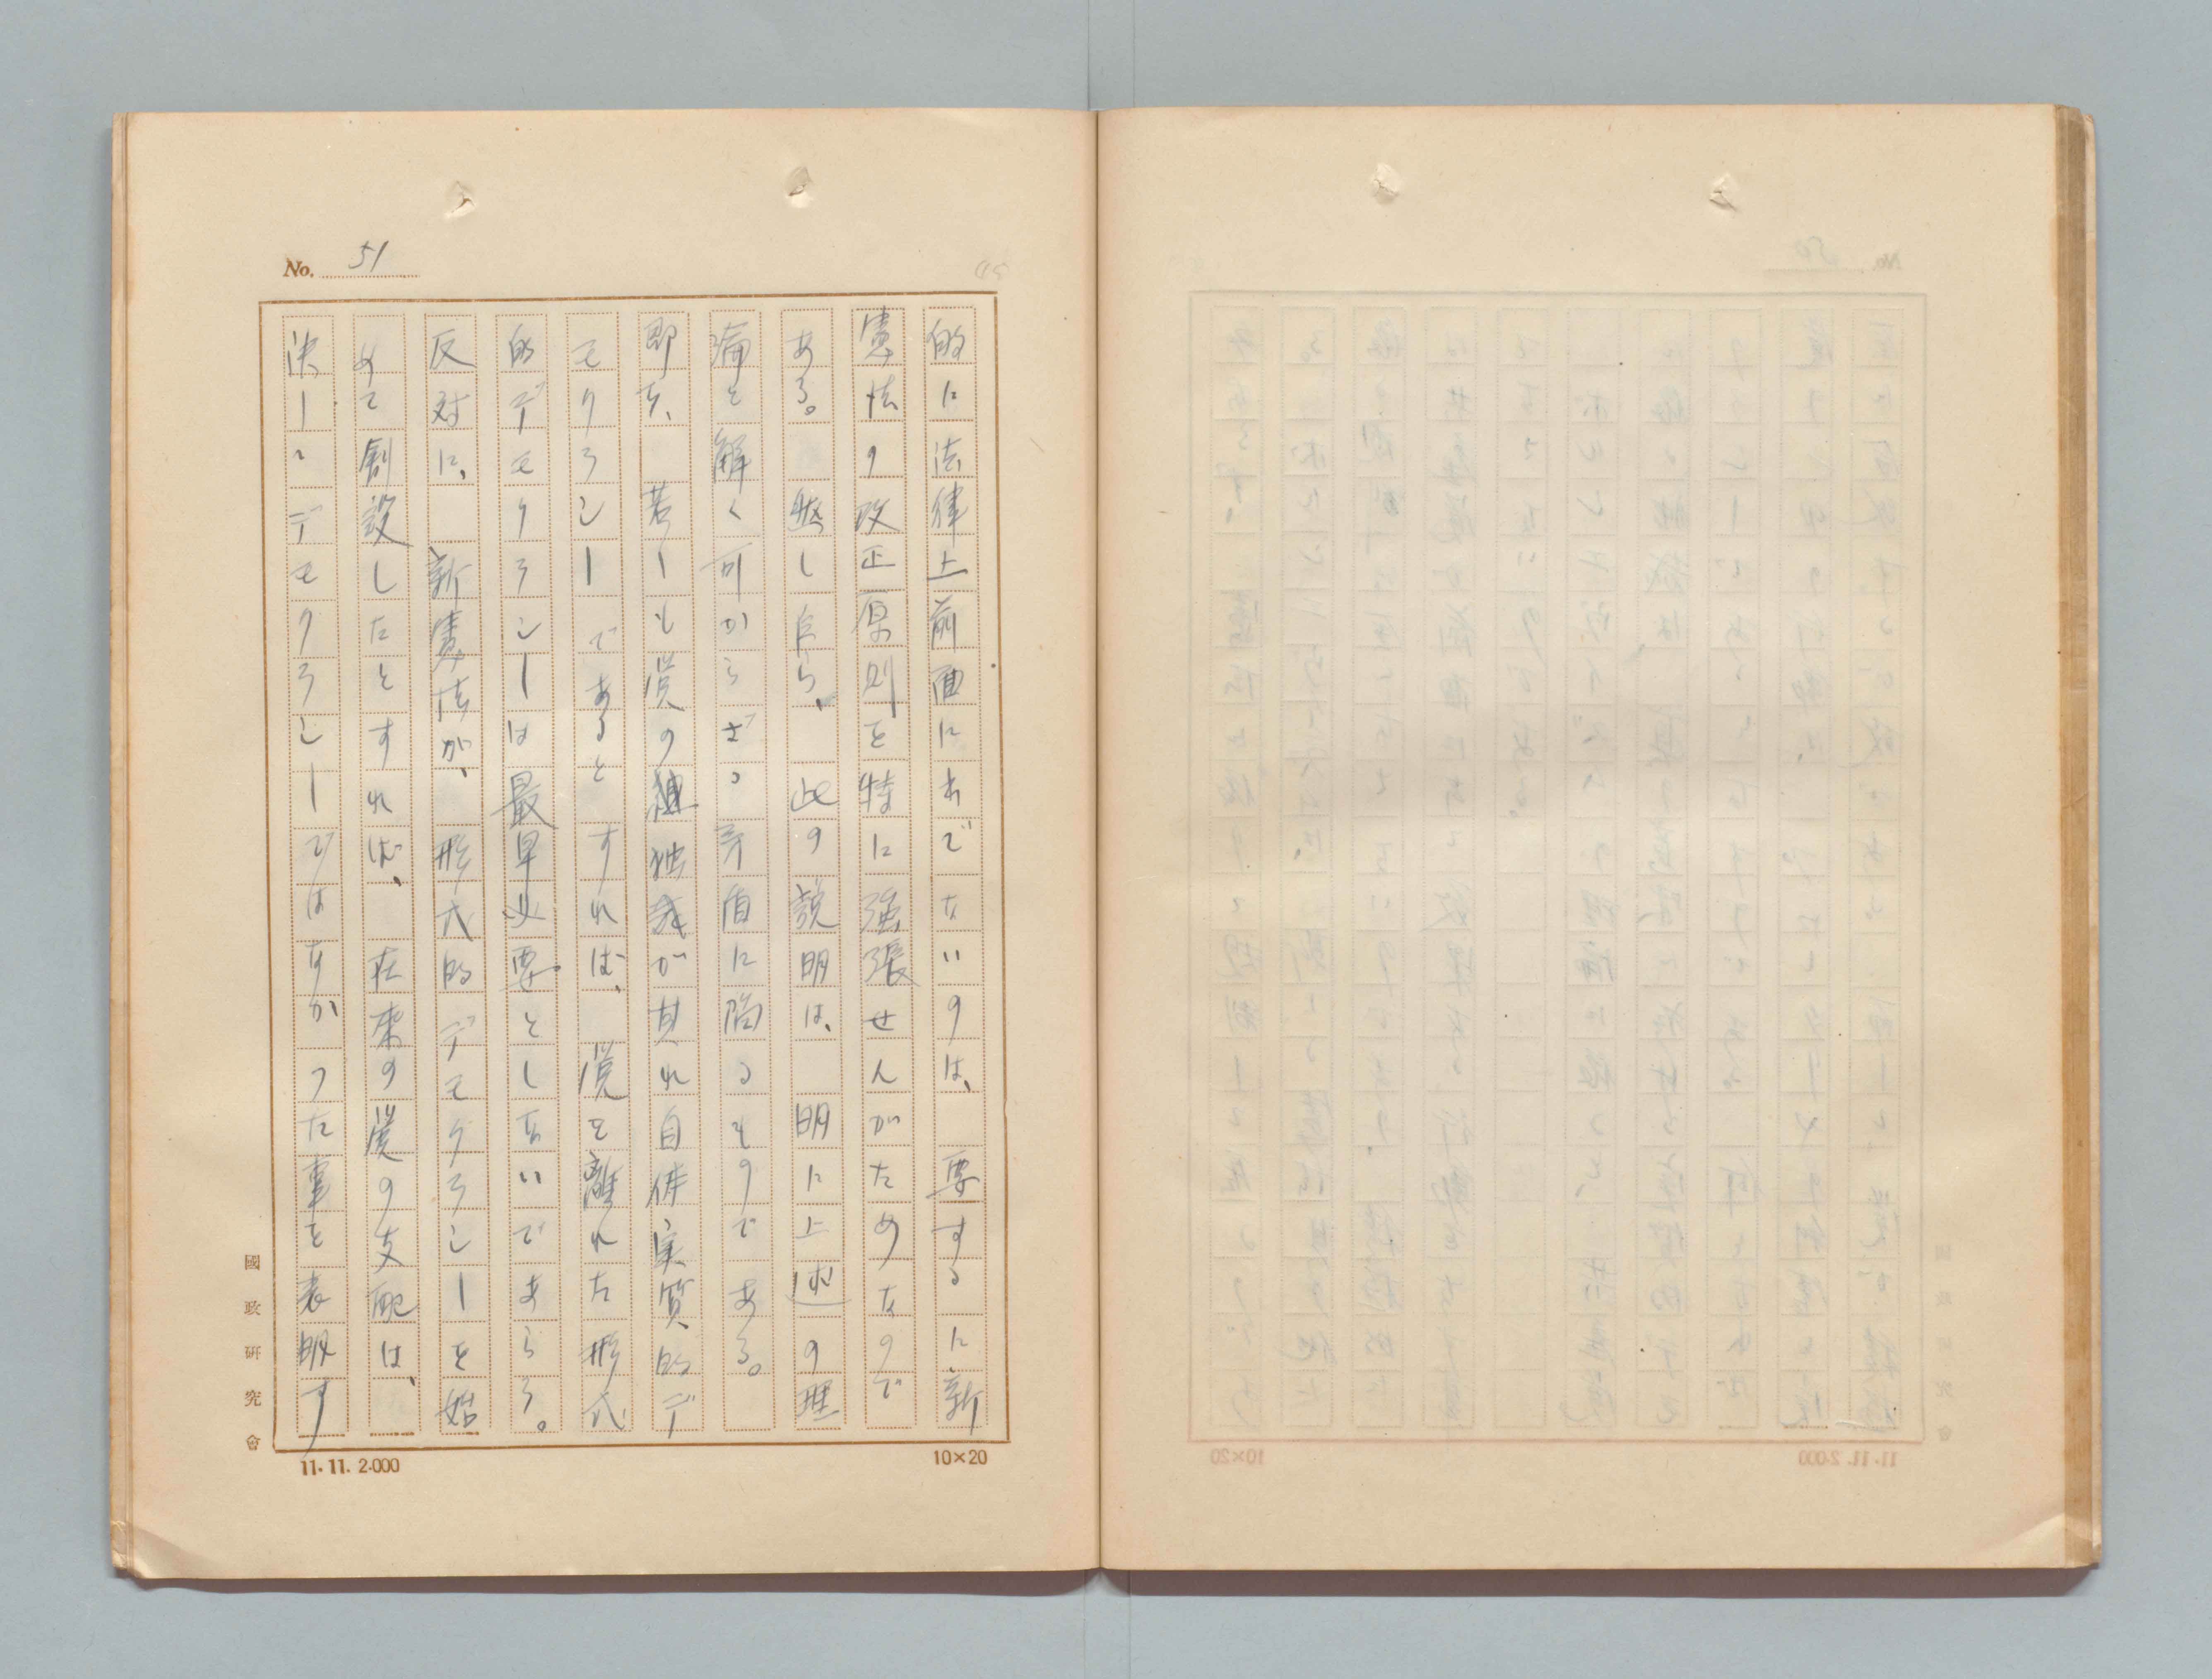 No. 51
的に法律上前面に出でないのは、要するに新
憲法の改正原則を特に強張せんがためなので
ある。然し乍ら、此の説明は、明に上述の理
論を解く可からざる矛盾に陥るものである。
即ち、若しも党の独裁が其れ自体実質的デ
モクラシーであるとすれば、党を離れた形式
的デモクラシーは最早必要としないであらう。
反対に、新憲法が、形式的デモクラシーを始
めて創設したとすれば、在来の党の支配は、
決してデモクラシーではなかつた事を表明す
國政研究會
11.11. 2.000
10×20